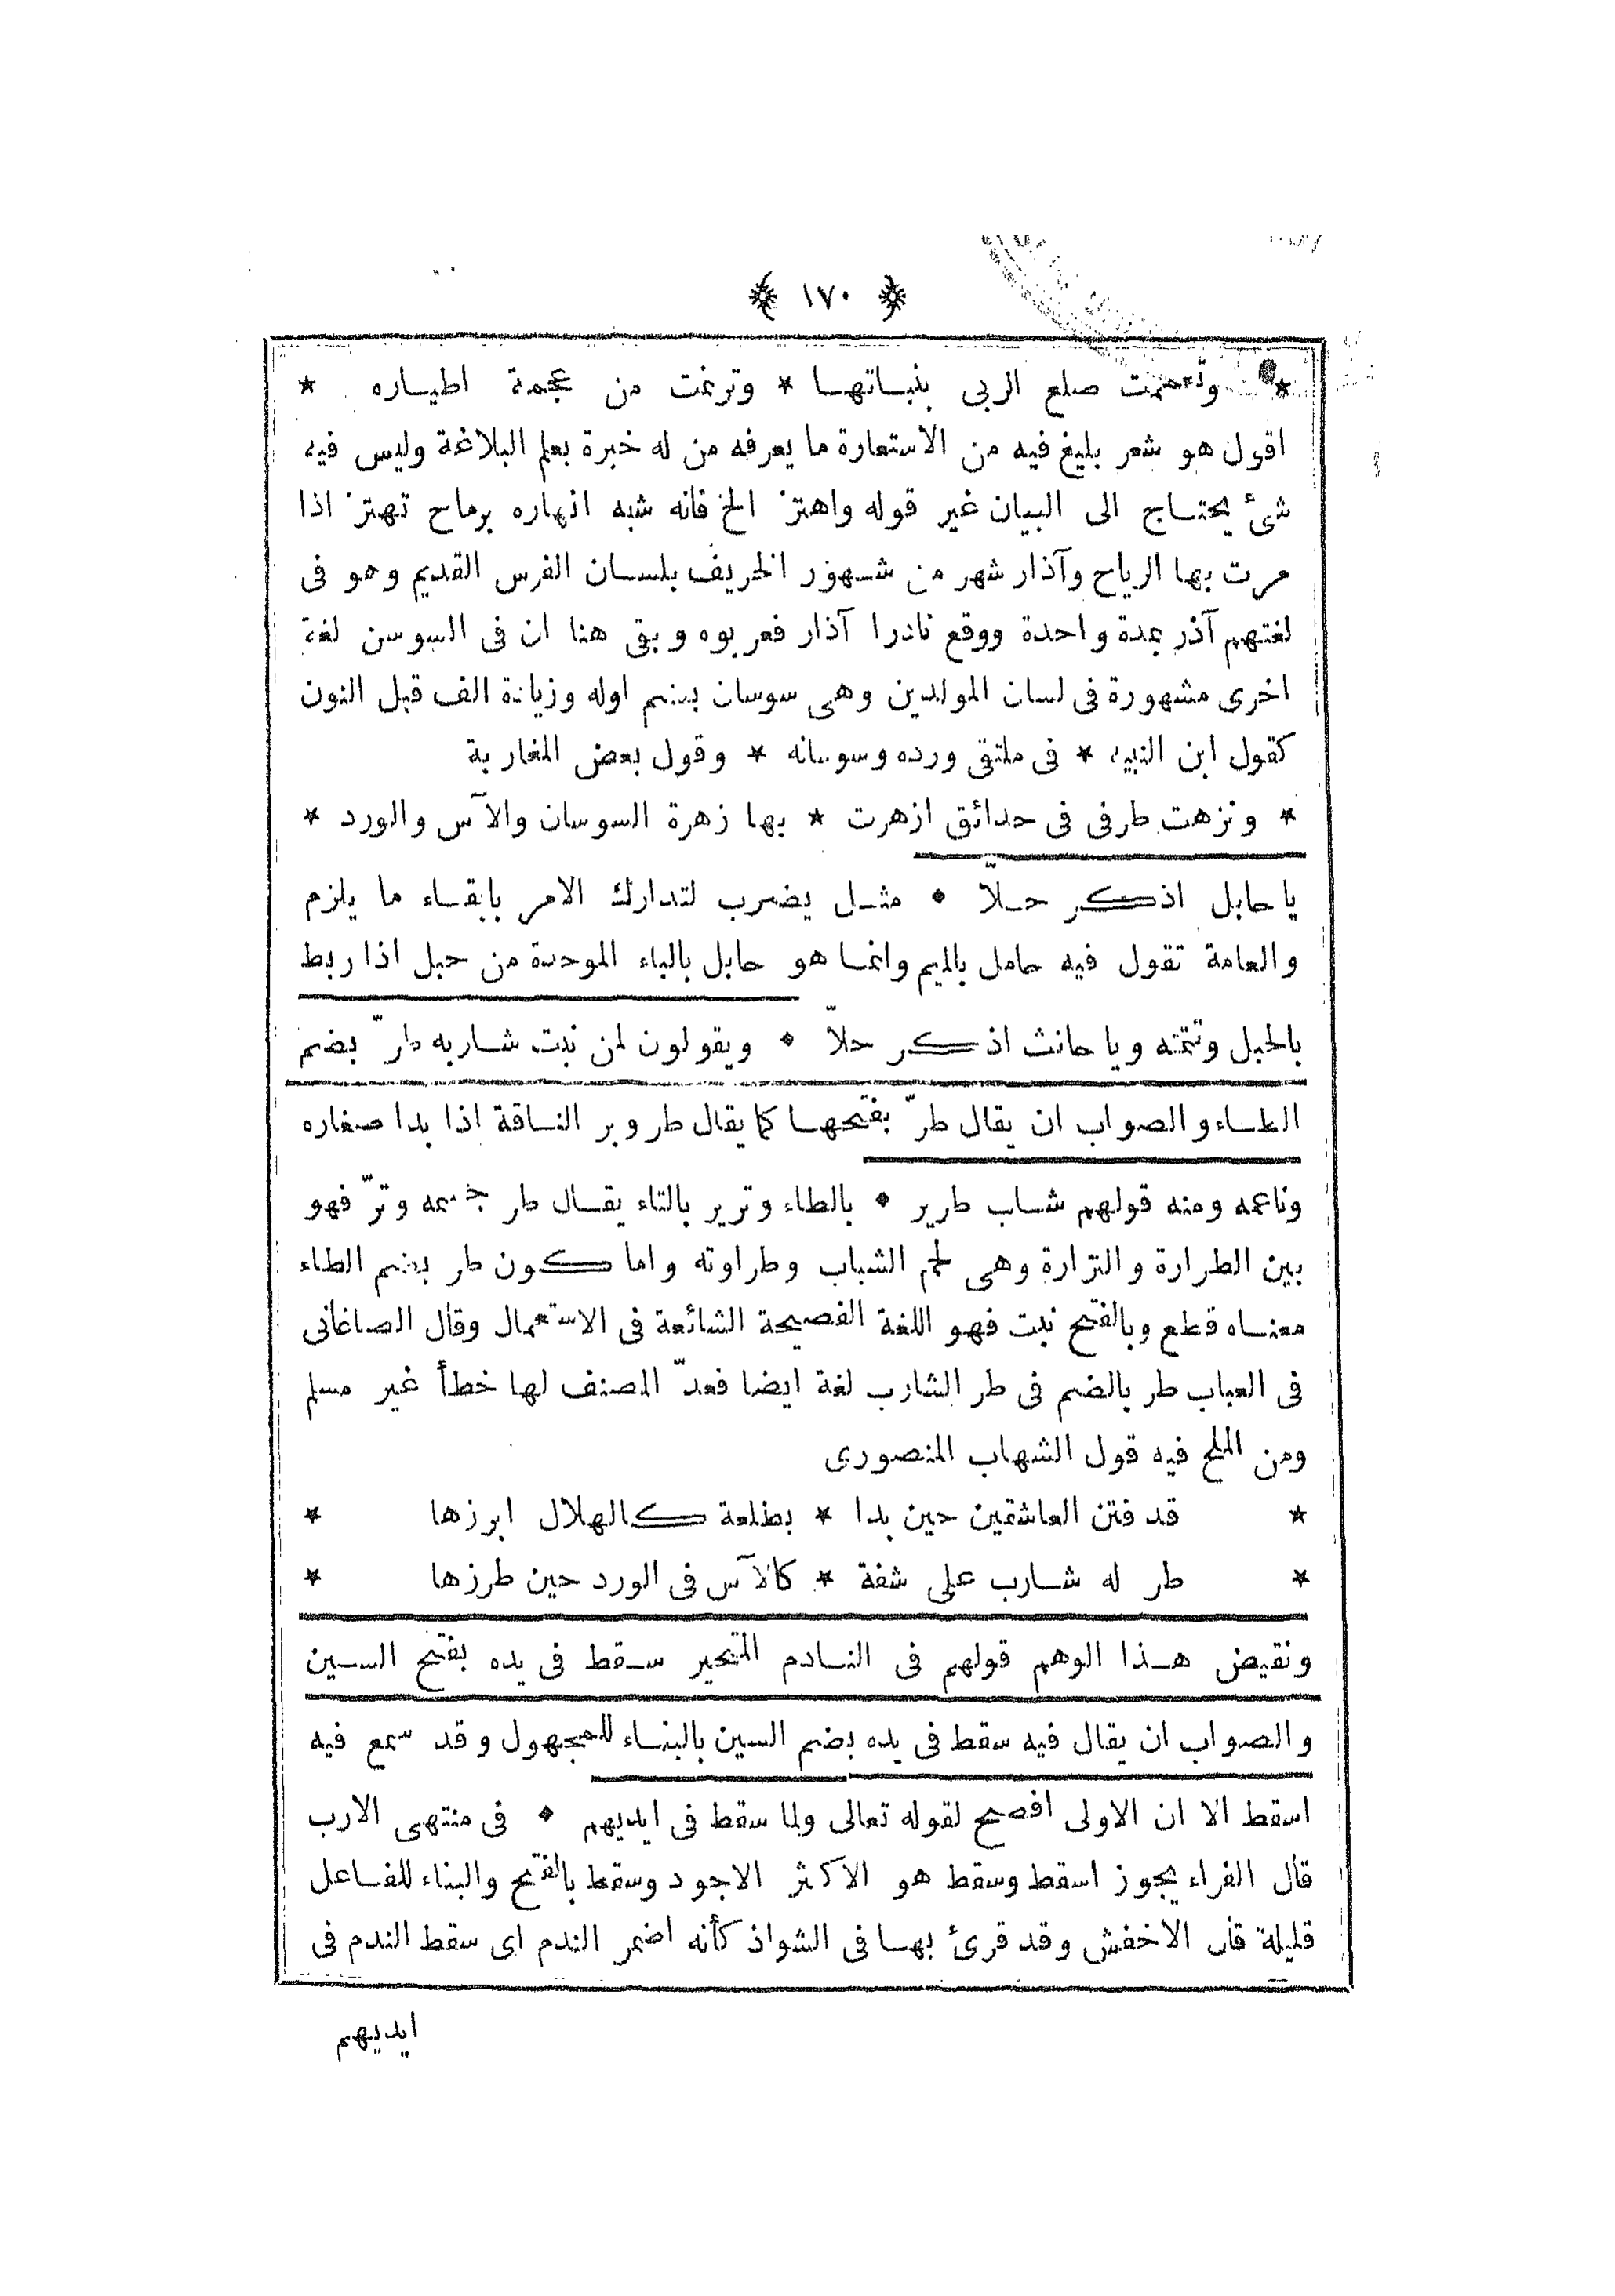 ﴿ ١٧٠ ﴾
* وتعممت صلع الربى بنباتها * وترنمت من عجمة اطياره *
اقول هو شعر بليغ فيه من الاستعارة ما يعرفه من له خبرة بعلم البلاغة وليس فيه
شئ يحتاج الى البيان غير قوله واهتز الخ فانه شبه انهاره برماح تهتز اذا
مرت بها الرياح وآذار شهر من شهور الخريف بلسان الفرس القديم وهو فى
لغتهم آذر بمدة واحدة ووقع نادرا آذار فعربوه وبقى هنا ان فى السوسن لغة
اخرى مشهورة فى لسان المولدين وهى سوسان بضم اوله وزيادة الف قبل النون
كقول ابن النبيه * فى ملتقى ورده وسوسانه * وقول بعض المغاربة
* ونزهت طرفى فى حدائق ازهرت * بها زهرة السوسان والآس والورد *
يا حابل اذكر حلاّ ٭ مثل يضرب لتدارك الامر بابقاء ما يلزم
والعامة تقول فيه حامل بالميم وانما هو حابل بالباء الموحدة من حبل اذا ربط
بالحبل وتتمته ويا حانث اذكر حلاّ ٭ ويقولون لمن نبت شاربه طرّ بضم
الطاء والصواب ان يقال طرّ بفتحها كما يقال طر وبر الناقة اذا بدا صغاره
وناعمه ومنه قولهم شاب طرير ٭ بالطاء وترير بالتاء يقال طر جسمه وترّ فهو
بين الطرارة والترارة وهى لحم الشباب وطراوته واما كون طر بضم الطاء
معناه قطع وبالفتح نبت فهو اللغة الفصيحة الشائعة فى الاستعمال وقال الصاغانى
فى العباب طر بالضم فى طر الشارب لغة ايضا فعدّ المصنف لها خطأ غير مسلم
ومن الملح فيه قول الشهاب المنصورى
* قد فتن العاشقين حين بدا * بطلعة كالهلال ابرزها *
* طر له شارب على شفة * كالآس فى الورد حين طرزها *
ونقيض هذا الوهم قولهم فى النادم المتحير سقط فى يده بفتح السين
والصواب ان يقال فيه سقط فى يده بضم السين بالبناء للمجهول وقد سمع فيه
اسقط الا ان الاولى افصح لقوله تعالى ولما سقط فى ايديهم ٭ فى منتهى الارب
قال الفراء يجوز اسقط وسقط هو الاكثر الاجود وسقط بالفتح والبناء للفاعل
قليلة قال الاخفش وقد قرئ بها فى الشواذ كأنه اضمر الندم اى سقط الندم فى
ايديهم